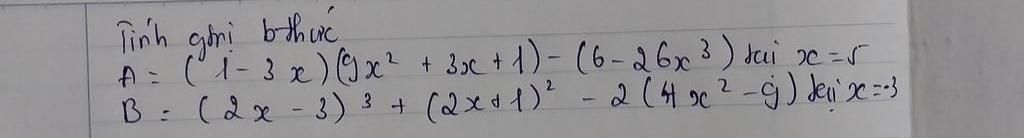 Tính gtrị bthức
A = (1 - 3x)(9x² + 3x + 1) - (6 - 26x³) tại x = 5
B = (2x - 3)³ + (2x + 1)² - 2(4x² - 9) tại x = -3